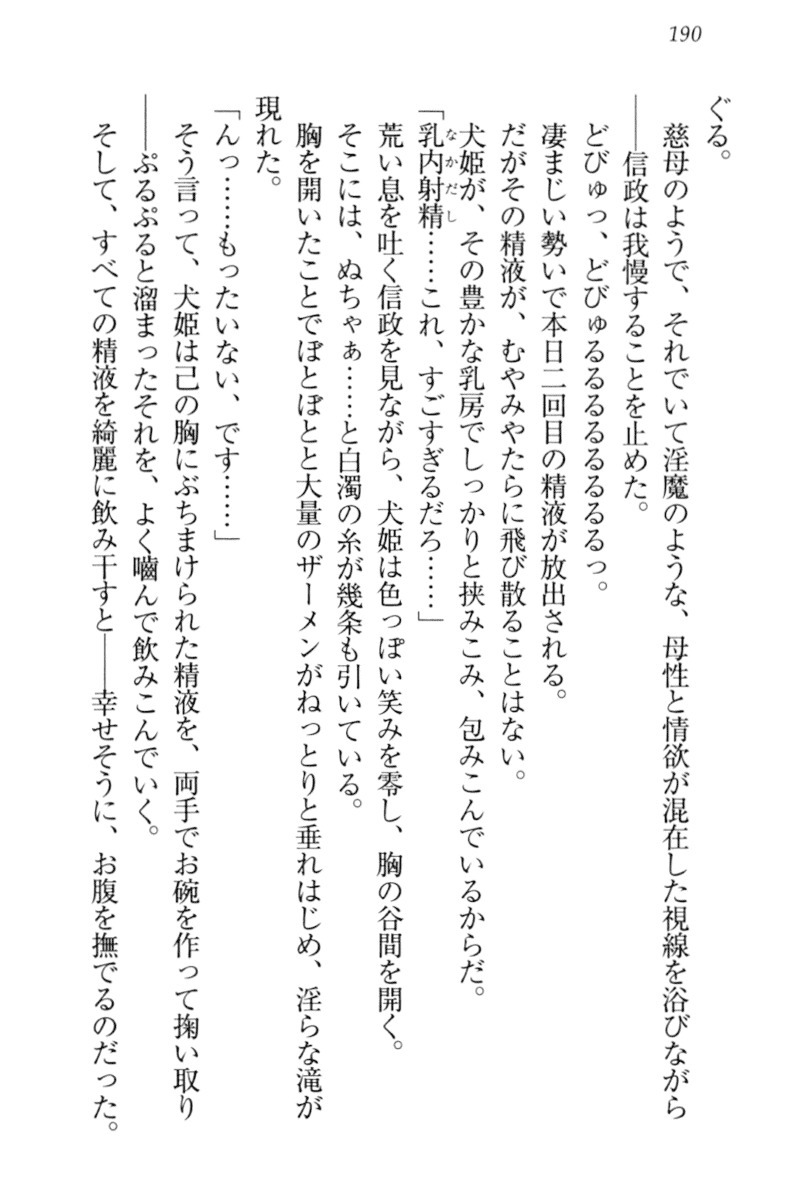 190
ぐる。
慈母のようで、それでいて淫魔のような、母性と情欲が混在した視線を浴びながら
――信政は我慢することを止めた。
どびゅっ、どびゅるるるるるるるるっ。
凄まじい勢いで本日二回目の精液が放出される。
だがその精液が、むやみやたらに飛び散ることはない。
犬姫が、その豊かな乳房でしっかりと挟みこみ、包みこんでいるからだ。
「乳内射精……これ、すごすぎるだろ……」
なかだし
荒い息を吐く信政を見ながら、犬姫は色っぽい笑みを零し、胸の谷間を開く。
そこには、ぬちゃぁ……と白濁の糸が幾条も引いている。
胸を開いたことでぼとぼとと大量のザーメンがねっとりと垂れはじめ、淫らな滝が
現れた。
「んっ……もったいない、です……」
そう言って、犬姫は己の胸にぶちまけられた精液を、両手でお碗を作って掬い取り
――ぷるぷると溜まったそれを、よく嚙んで飲みこんでいく。
そして、すべての精液を綺麗に飲み干すと――幸せそうに、お腹を撫でるのだった。